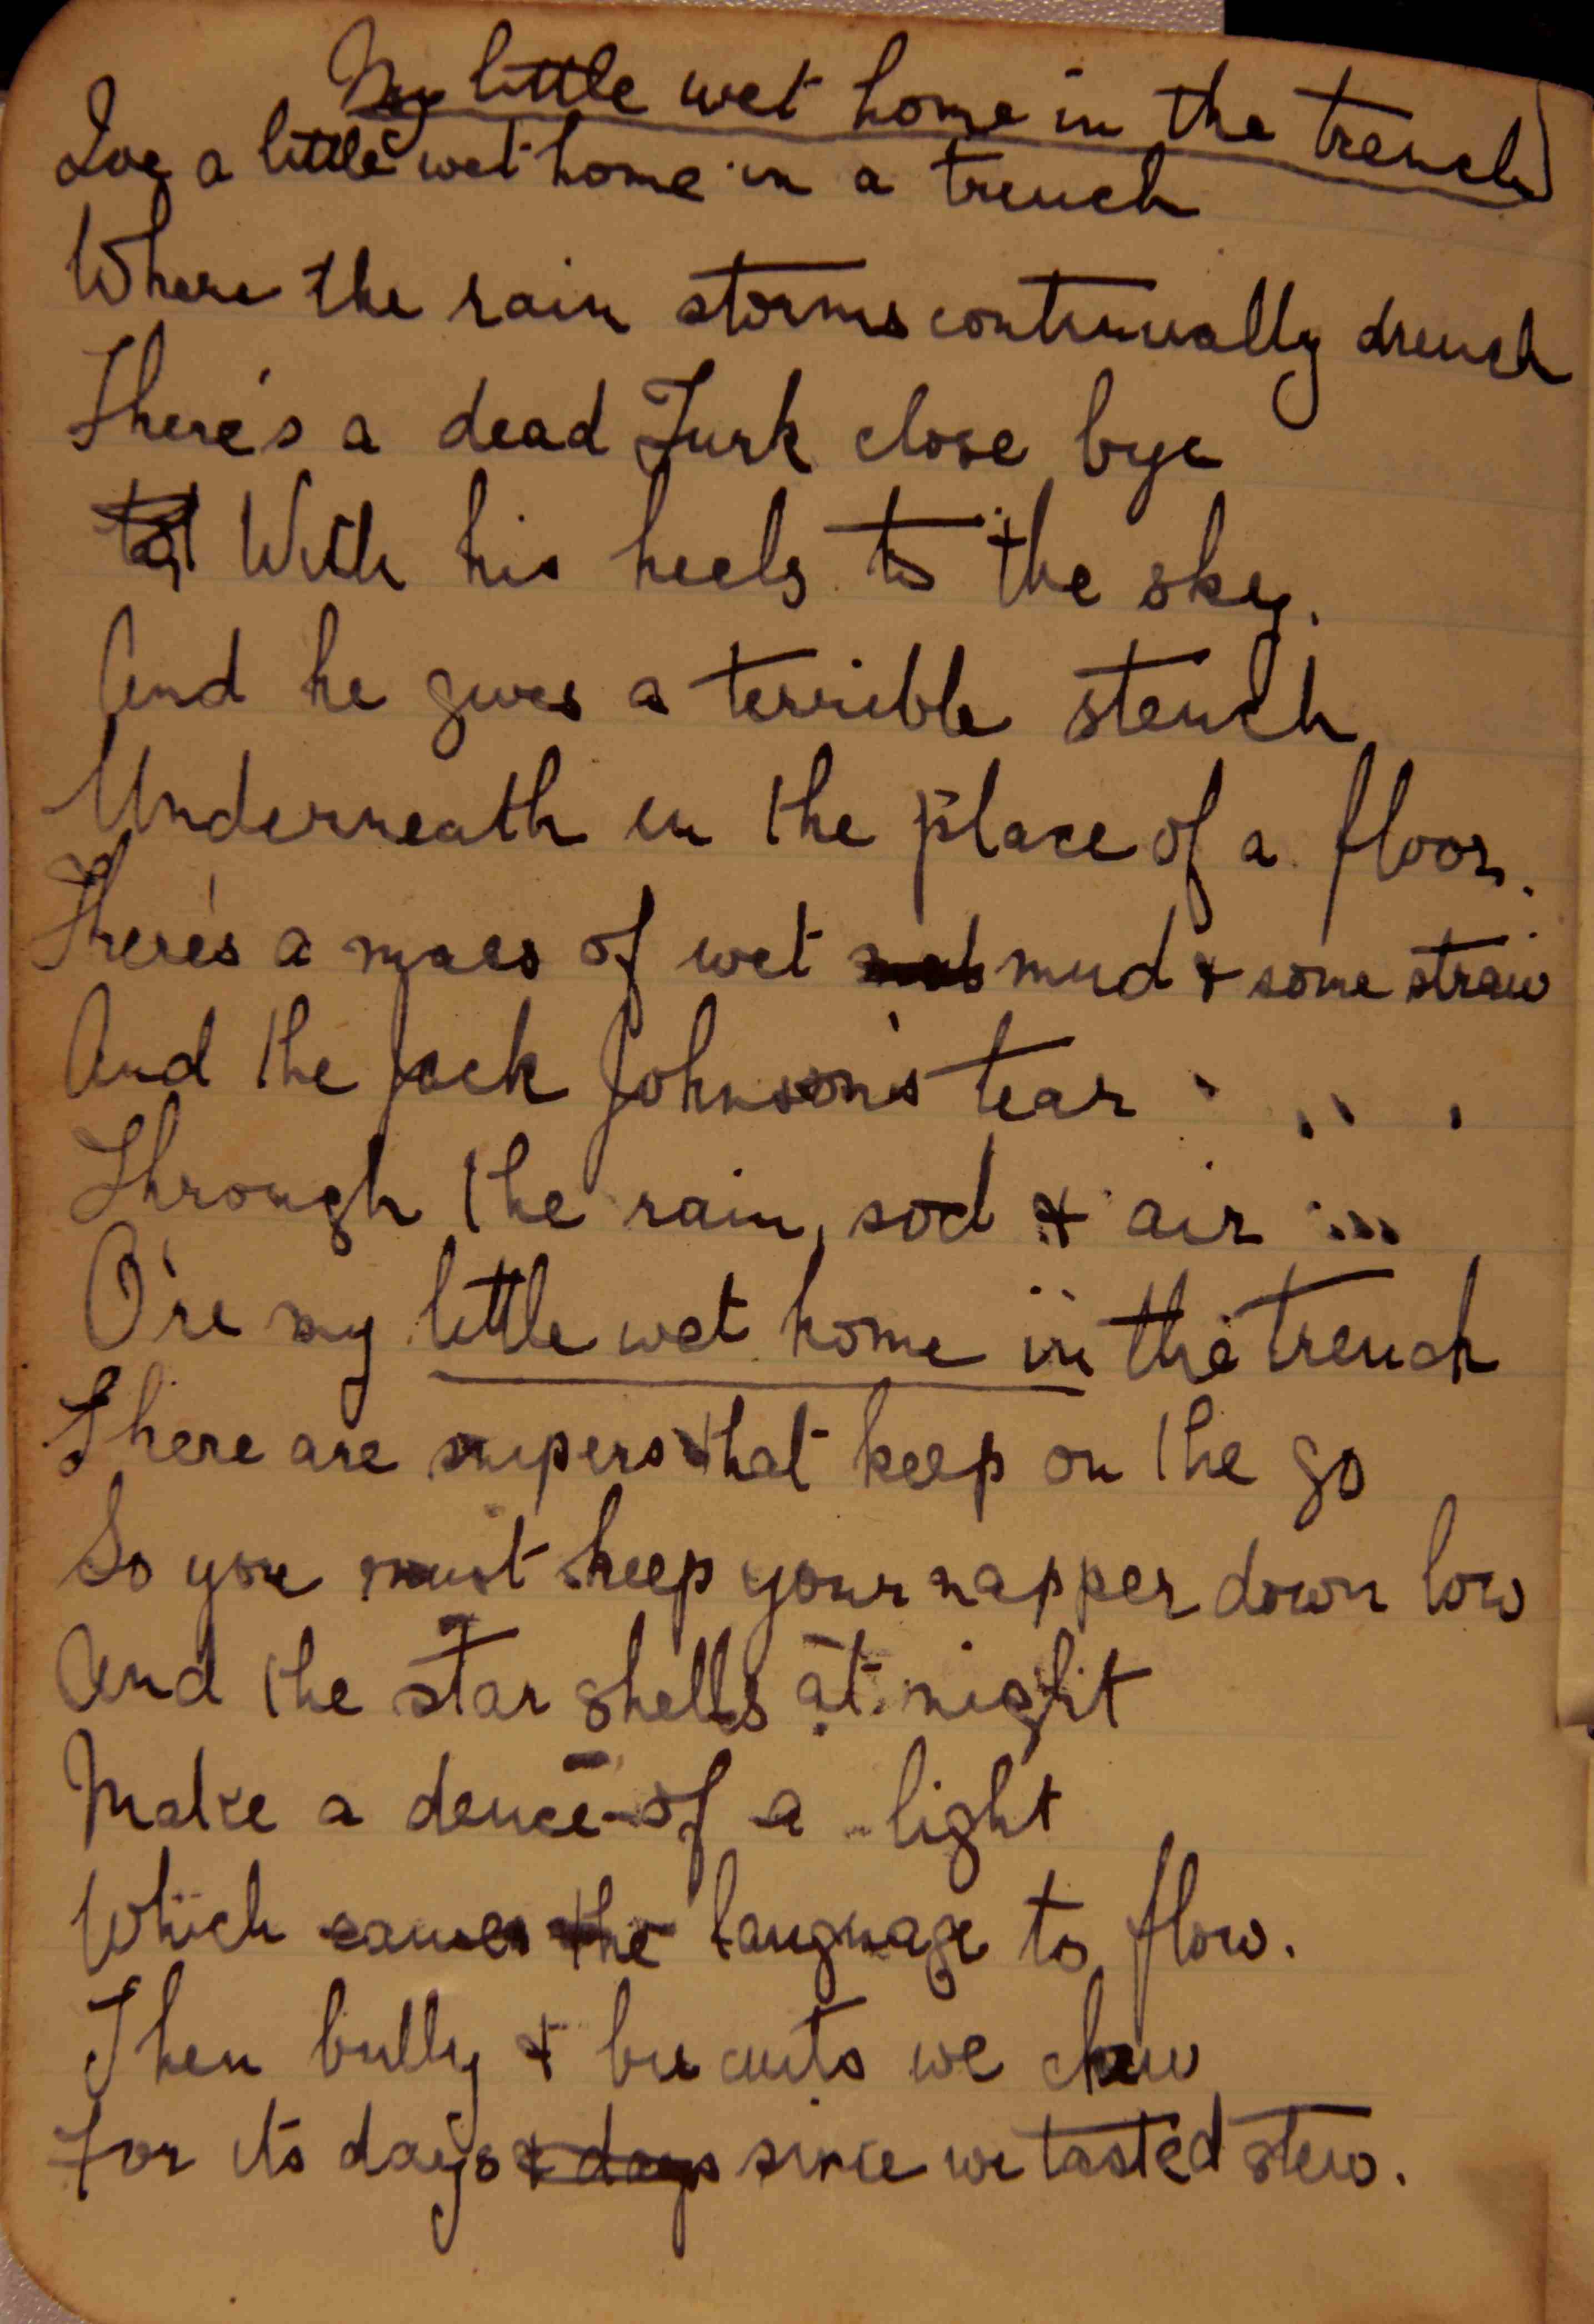 My little wet home in the trench
Ive a little wet home in a trench
Where the rain storms continually drench
There's a dead Turk close bye
With his heels to the sky.
And he gives a terrible stench
Underneath in the place of a floor.
There's a mass of wet mud & some straw
And the Jack Johnson's tear
Through the rain, sod & air
O're my little wet home in the trench
There are snipers that keep on the go
So you must keep your napper down low
And the star shells at night
Make a deuce of a light
Which causes the language to flow.
Then bully & biscuits we chew
For its days & days since we tasted stew.